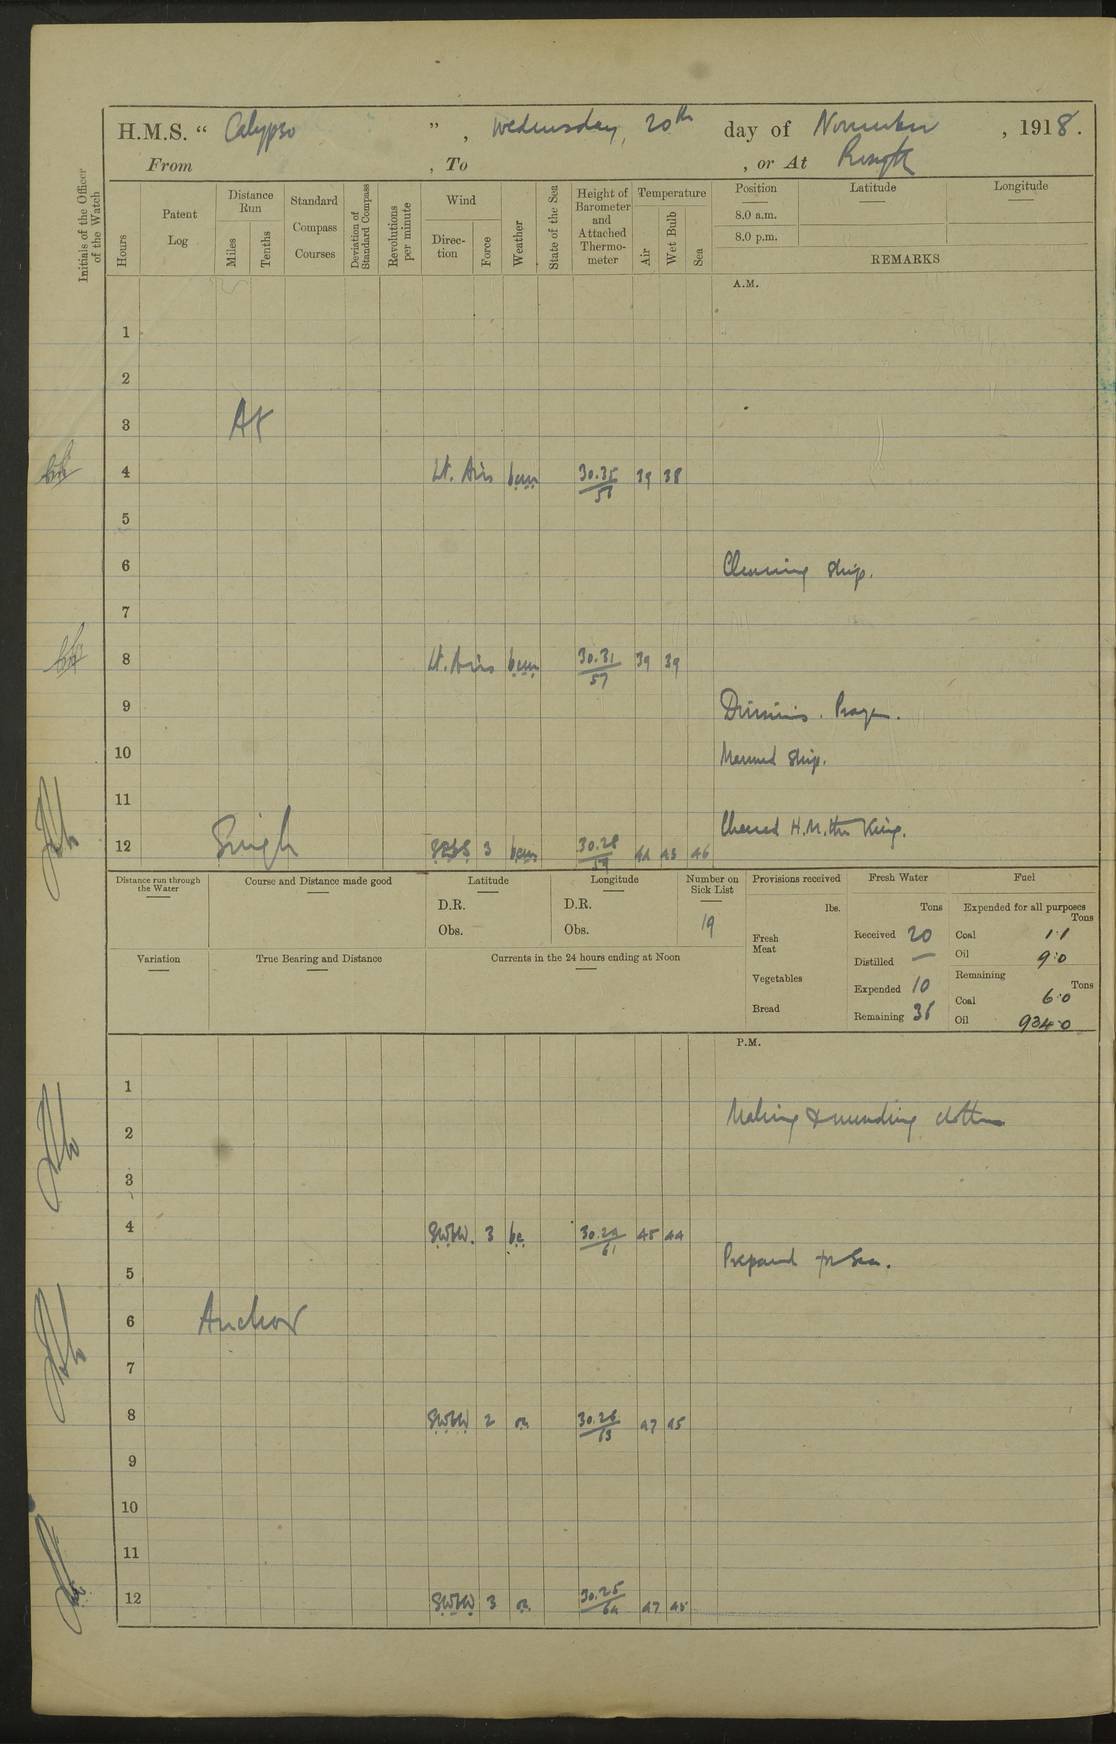 H.M.S. “ Calypso ” , Wednesday, 20th day of November , 1918.
From , To , or At Rosyth
Initials of the Officer of the Watch
Hours
Patent Log
Distance Run
Miles
Tenths
Standard Compass Courses
Deviation of Standard Compass
Revolutions per minute
Wind
Direction
Force
Weather
State of the Sea
Height of Barometer and Attached Thermometer
Temperature
Air
Wet Bulb
Sea
Position
Latitude
Longitude
8.0 a.m.
8.0 p.m.
REMARKS
A.M.
1
2
3 At
4 Lt. Airs bcm 30.35 39 38
5
6 Cleaning ship.
7
8 Lt. Airs bcm 30.31/57 39 39
9 Divisions. Prayers.
10 Manned ship.
11
Cheered H.M. the King.
12 Single 3 bcm 30.28/59 44 43 46
Distance run through the Water
Course and Distance made good
Latitude
D.R.
Obs.
Longitude
D.R.
Obs.
Number on Sick List
19
Variation
True Bearing and Distance
Currents in the 24 hours ending at Noon
Provisions received
lbs.
Fresh Meat
Vegetables
Bread
Fresh Water
Tons
Received 20
Distilled —
Expended 10
Remaining
Fuel
Expended for all purposes
Tons
Coal 1·1
Oil 9·0
Remaining
Tons
Coal 6·0
Oil 934·0
P.M.
1
Making & mending clothes
2
3
4 SWbW. 3 bc 30.29/61 45 44
Prepared for Sea.
5
6 Anchor
7
8 SWbW 2 o 30.26/63 47 45
9
10
11
12 SWbW 3 o 30.25/64 47 45